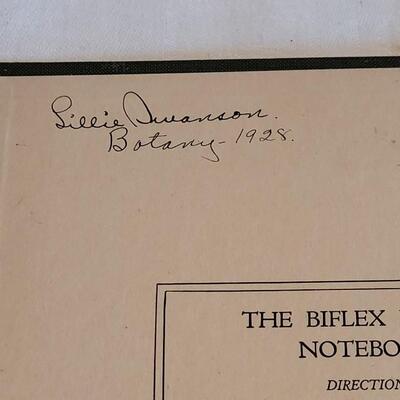 Lillie Swanson.
Botany - 1928.
THE BIFLEX
NOTEBO
DIRECTION